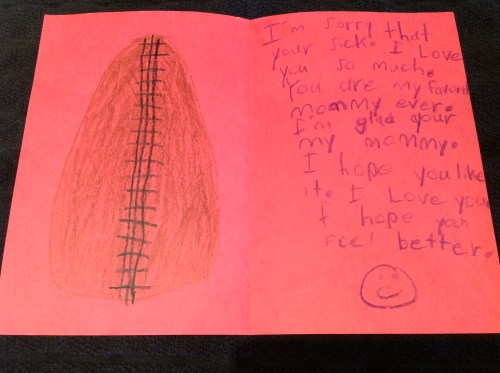 I'm sorry that
your sick. I Love
you so much.
You are my favorit
mommy ever.
I'm glad your
my mommy.
I hope you like
it. I Love you
I hope you
feel better.